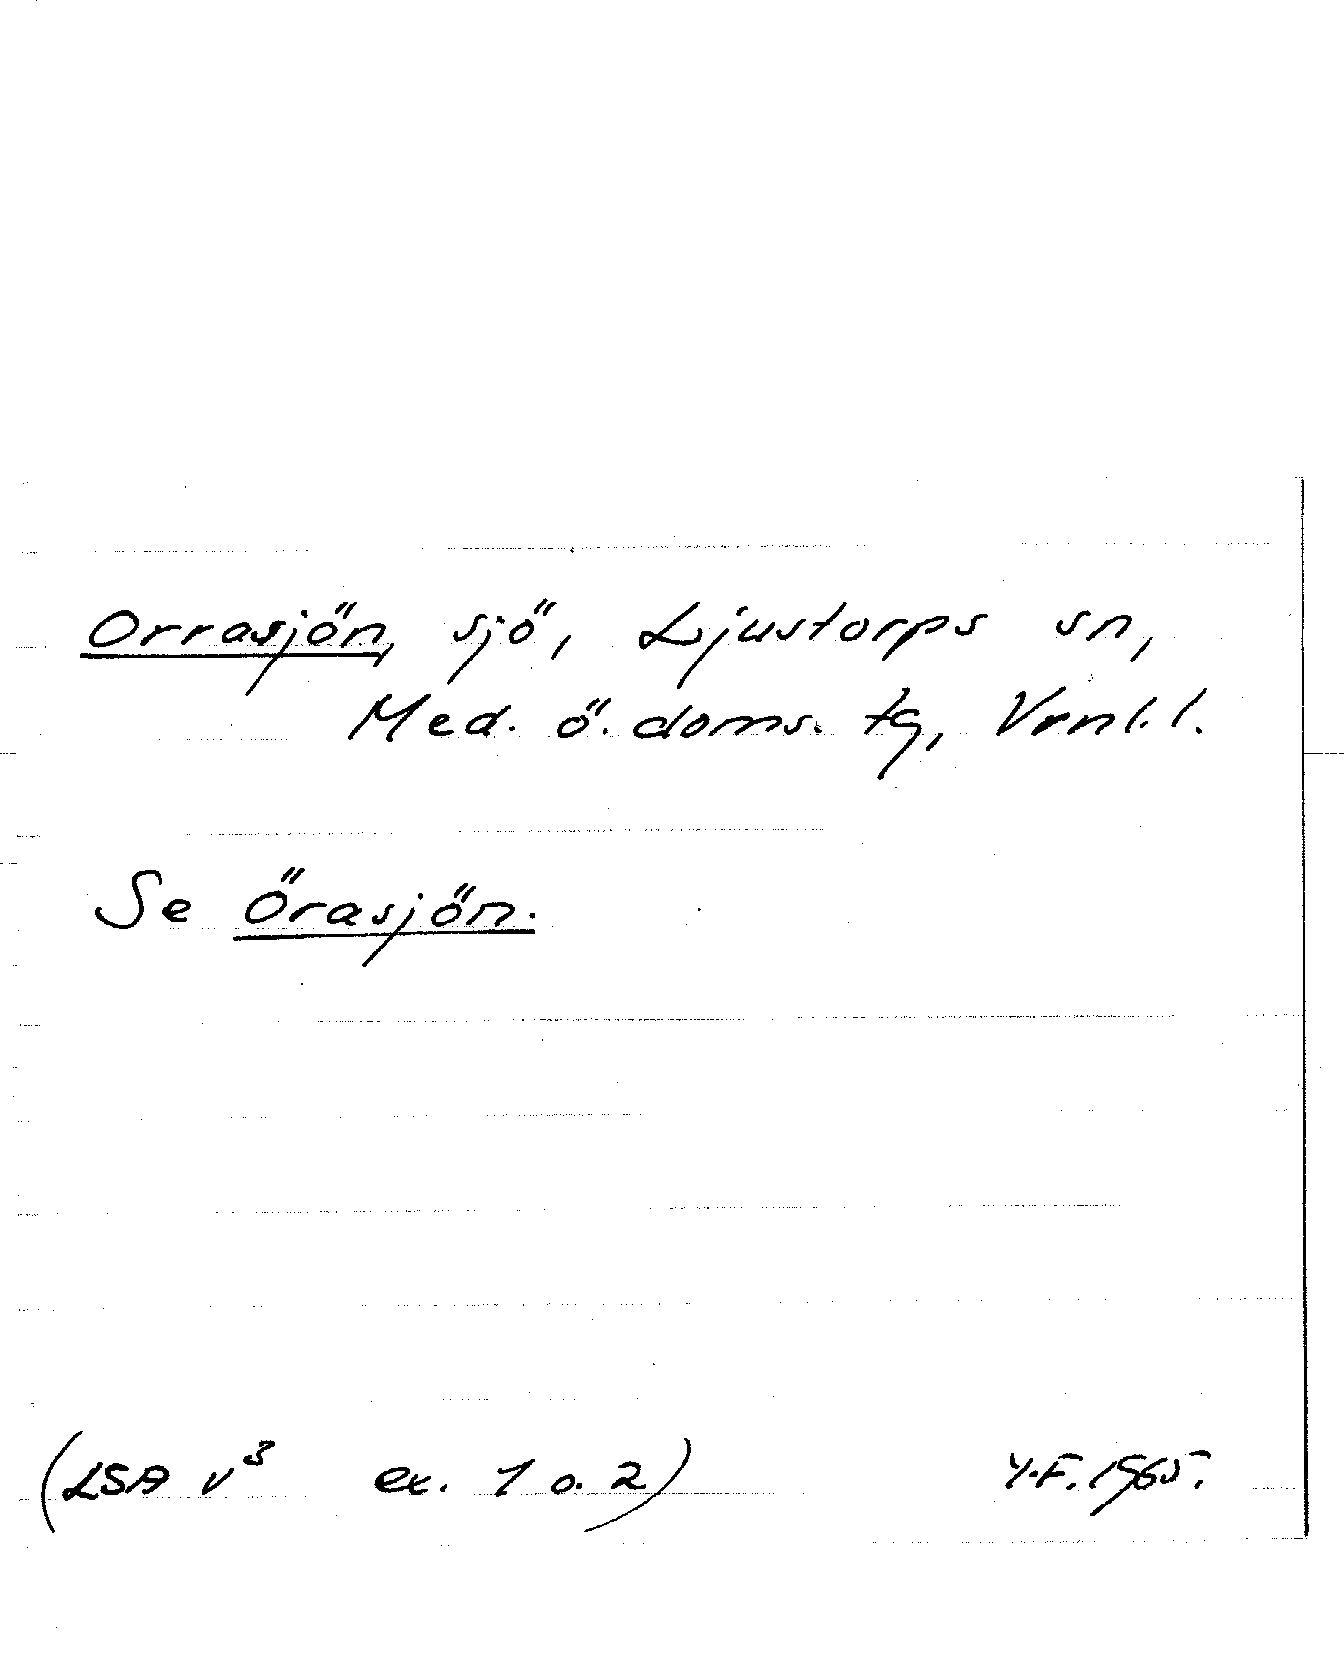 Orrasjön, sjö, Ljustorps sn,
Med. ö. doms. tg, Vrnl. l.
Se Örasjön.
(LSA v³ ex. 1 o. 2) Y.F. 1965.